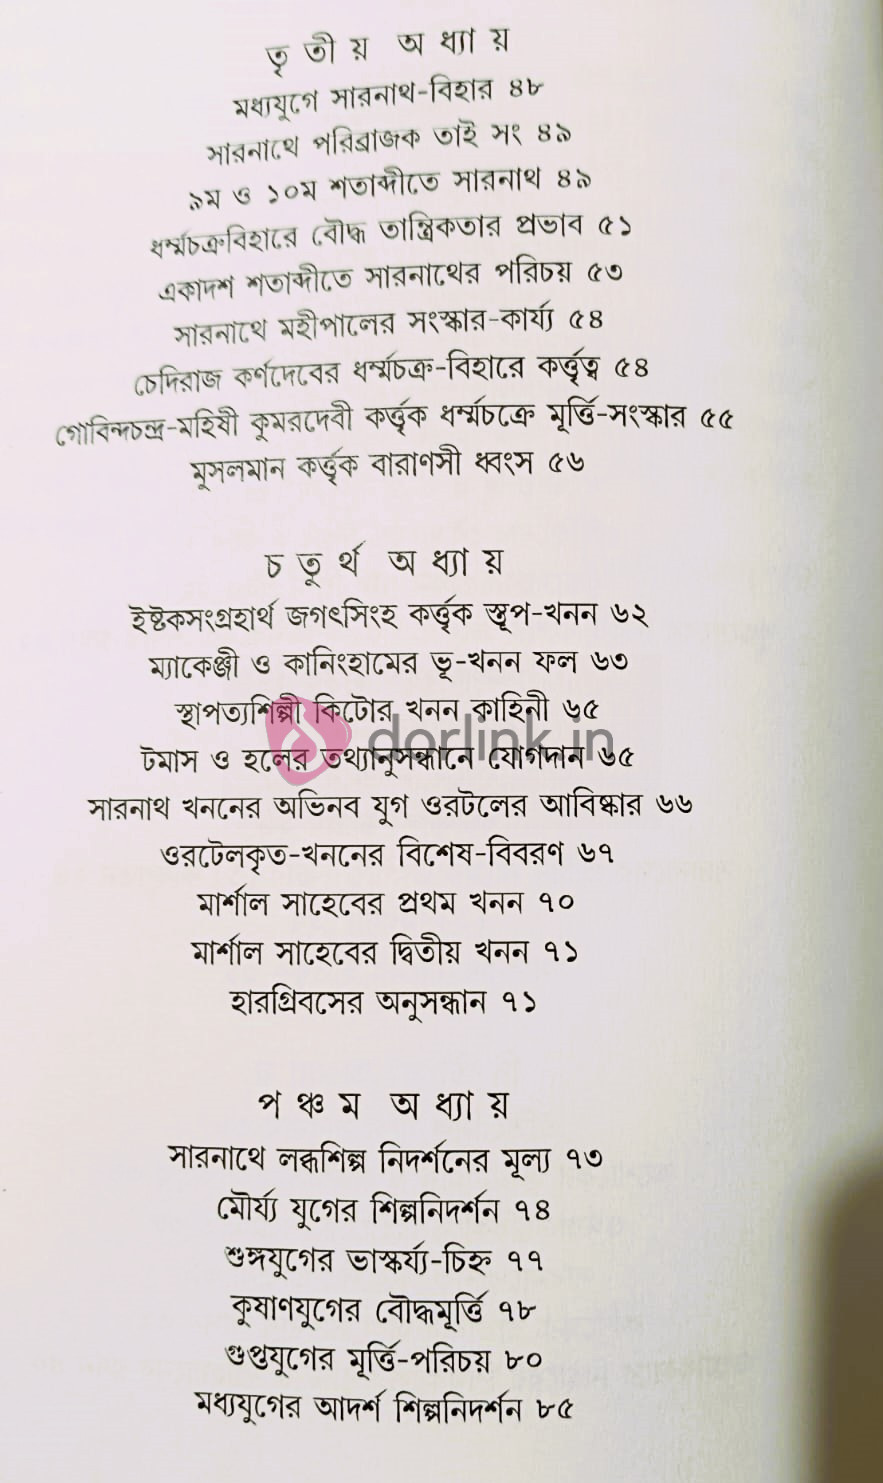 তৃ তী য় অ ধ্যা য়
মধ্যযুগে সারনাথ-বিহার ৪৮
সারনাথে পরিব্রাজক তাই সং ৪৯
৯ম ও ১০ম শতাব্দীতে সারনাথ ৪৯
ধর্ম্মচক্রবিহারে বৌদ্ধ তান্ত্রিকতার প্রভাব ৫১
একাদশ শতাব্দীতে সারনাথের পরিচয় ৫৩
সারনাথে মহীপালের সংস্কার-কার্য্য ৫৪
চেদিরাজ কর্ণদেবের ধর্ম্মচক্র-বিহারে কর্ত্তৃত্ব ৫৪
গোবিন্দচন্দ্র-মহিষী কুমরদেবী কর্ত্তৃক ধর্ম্মচক্রে মূর্ত্তি-সংস্কার ৫৫
মুসলমান কর্ত্তৃক বারাণসী ধ্বংস ৫৬
চ তু র্থ অ ধ্যা য়
ইষ্টকসংগ্রহার্থ জগৎসিংহ কর্ত্তৃক স্তূপ-খনন ৬২
ম্যাকেঞ্জী ও কানিংহামের ভূ-খনন ফল ৬৩
স্থাপত্যশিল্পী কিটোর খনন কাহিনী ৬৫
dorlink.in
টমাস ও হলের তথ্যানুসন্ধানে যোগদান ৬৫
সারনাথ খননের অভিনব যুগ ওরটলের আবিষ্কার ৬৬
ওরটেলকৃত-খননের বিশেষ-বিবরণ ৬৭
মার্শাল সাহেবের প্রথম খনন ৭০
মার্শাল সাহেবের দ্বিতীয় খনন ৭১
হারগ্রিবসের অনুসন্ধান ৭১
প ঞ্চ ম অ ধ্যা য়
সারনাথে লব্ধশিল্প নিদর্শনের মূল্য ৭৩
মৌর্য্য যুগের শিল্পনিদর্শন ৭৪
শুঙ্গযুগের ভাস্কর্য্য-চিহ্ন ৭৭
কুষাণযুগের বৌদ্ধমূর্ত্তি ৭৮
গুপ্তযুগের মূর্ত্তি-পরিচয় ৮০
মধ্যযুগের আদর্শ শিল্পনিদর্শন ৮৫